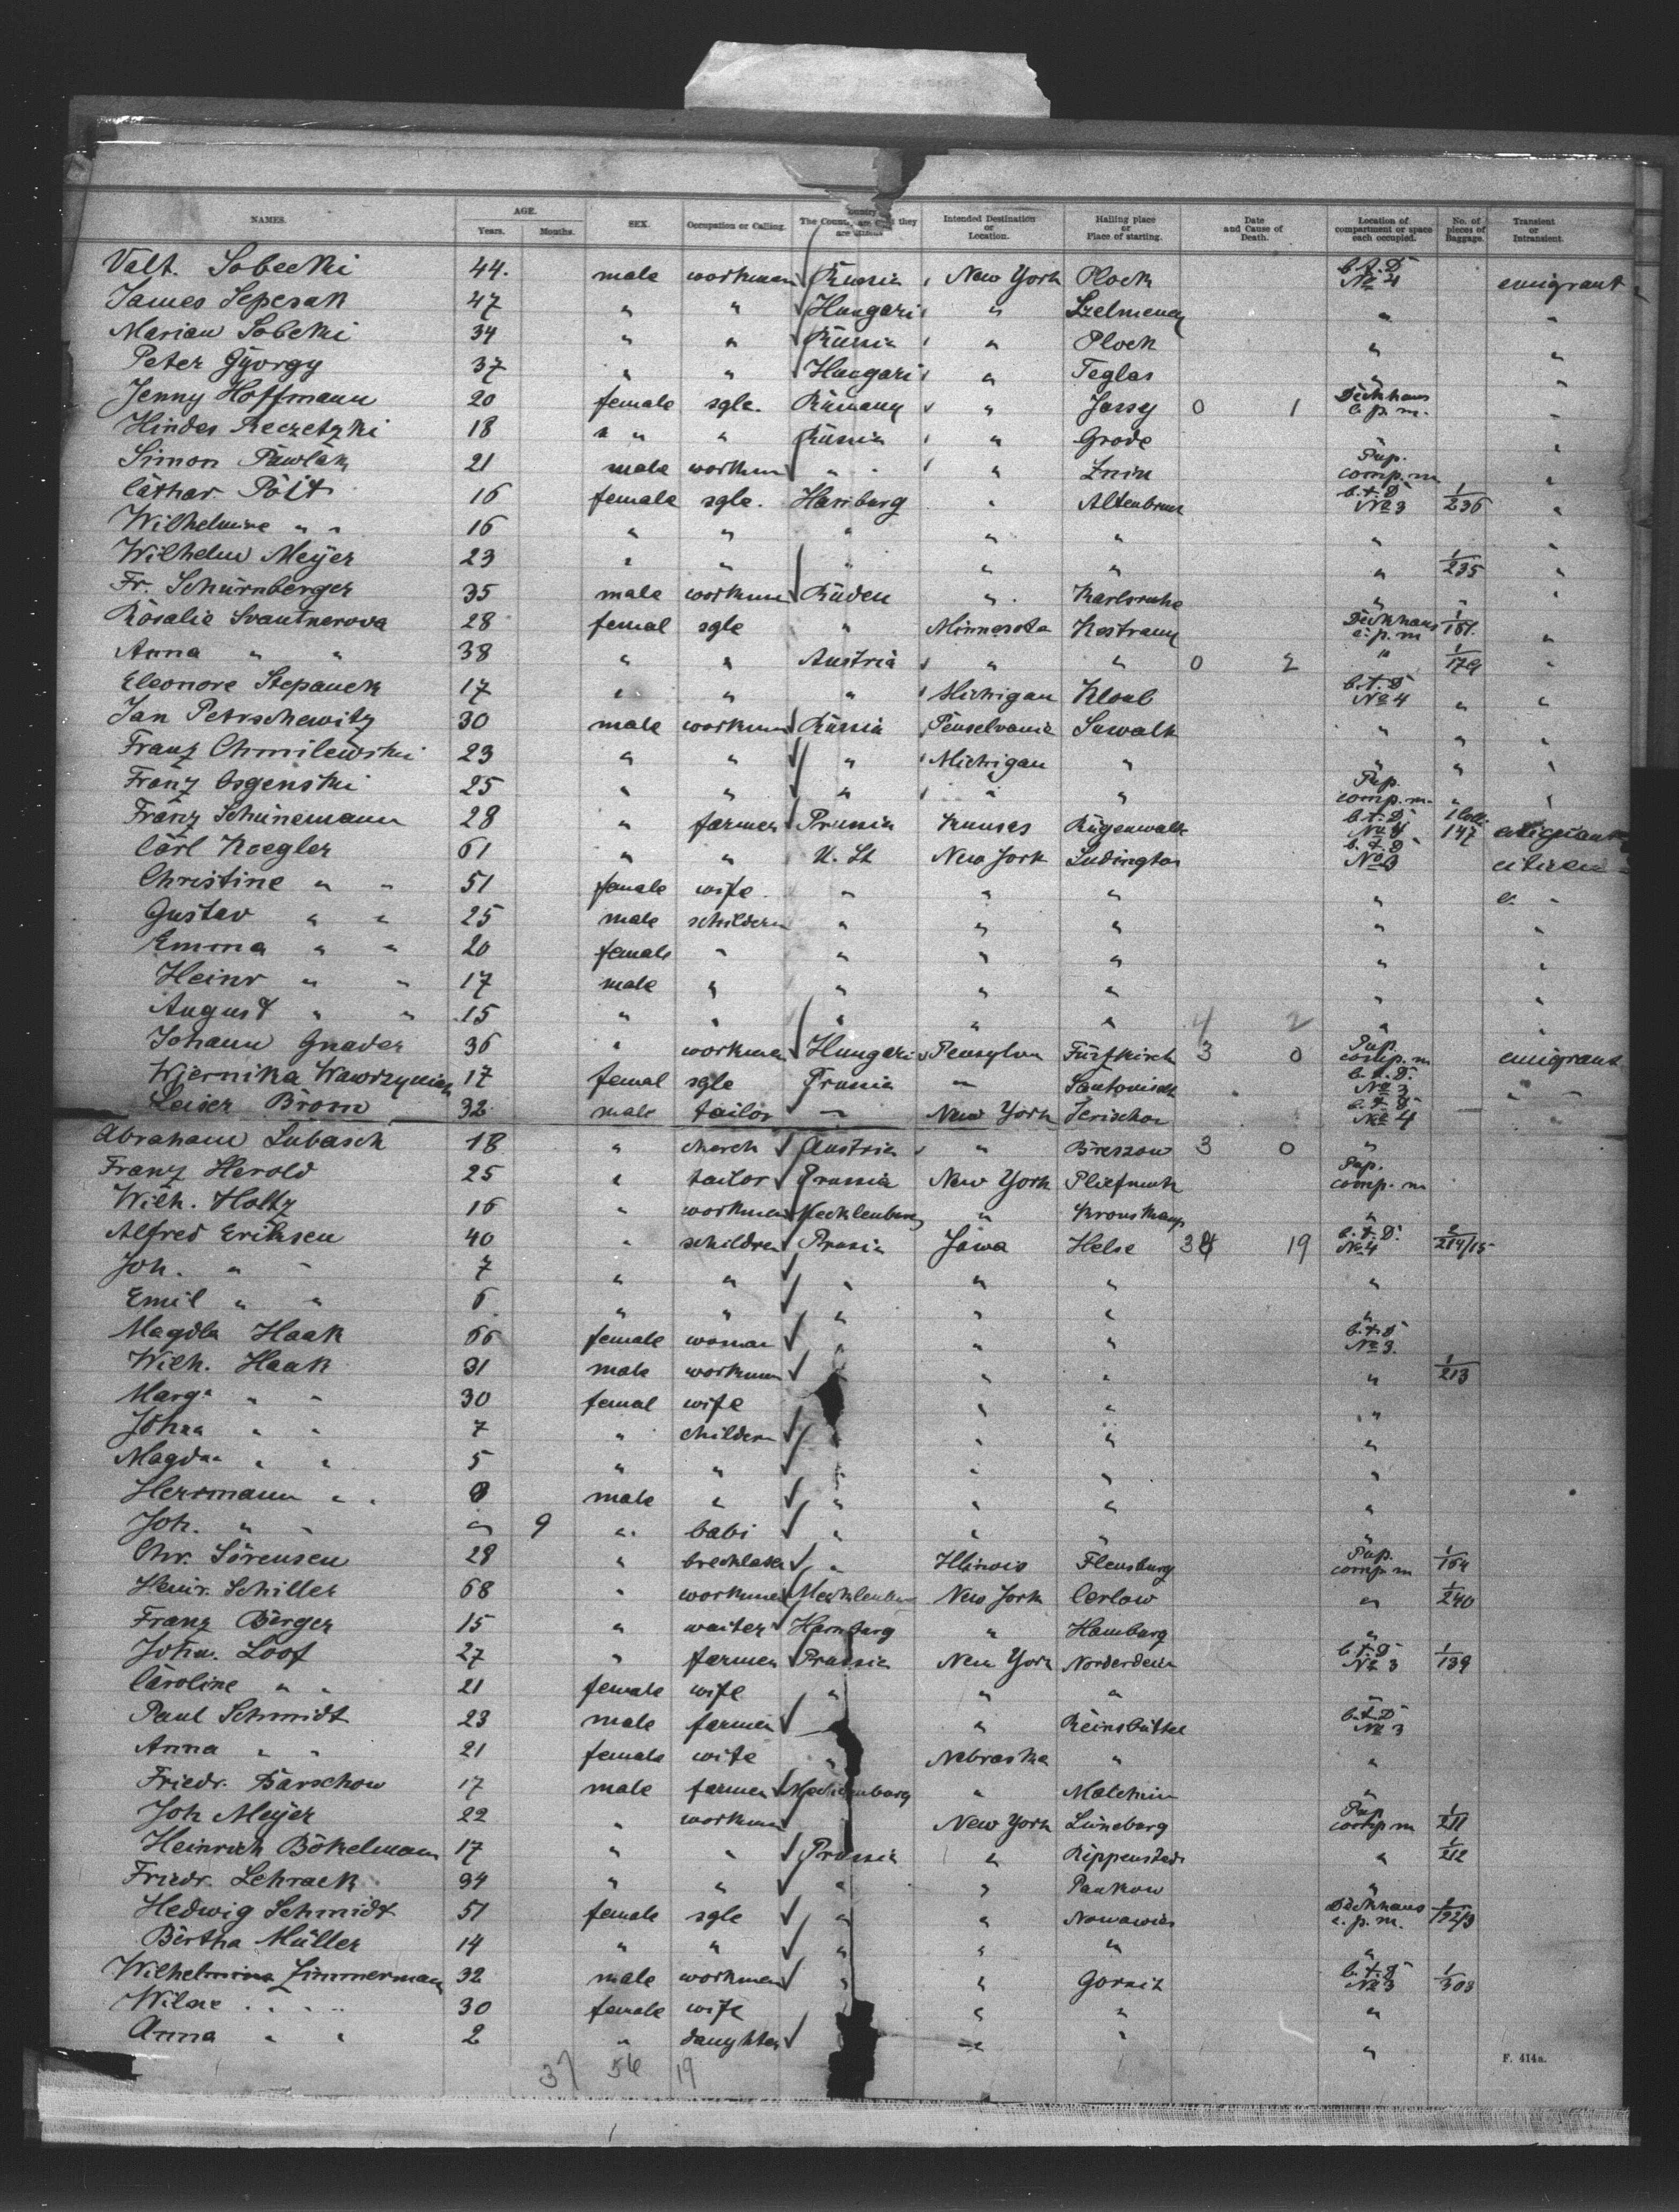 NAMES. AGE. Years. Months. SEX. Occupation or Calling. The Country are they are Intended Destination or Location. Halling place or Place of starting. Date and Cause of Death. Location of compartment or space each occupied. No. of pieces of Baggage. Transient or Intransient.
Valt. Sobecki 44. male workman Russia New York Plock b.t.D No 4 emigrant
James Sepesak 47 " " Hungari " "  "
Marian Sobecki 34 " " Russia " Plock " "
Peter György 37 " " Hungari " Teglas " "
Jenny Hoffmann 20 female sgle. Rumany " Jassy 0 1 Deckhaus c.p.m. "
Hindes Reczetzki 18 " " Russia " Grode "
Simon Pawlak 21 male workm " " Znin Pup. comp.m "
Cathar Pöit 16 female sgle. Hamburg " b.t.D No 3 1/236 "
Wilhelmine " " 16 " " " " " " "
Wilhelm Meyer 23 " " " " " " 1/235 "
Fr. Schürnberger 35 male workm " Karlsruhe " " "
Rosalie Svantnerova 28 femal sgle " Minnesota Deckhaus c.p.m 1/181. "
Anna " " 38 " " Austria " " 0 2 " 1/179 "
Eleonore Stepanek 17 " " " Michigan b.t.D No 4 " "
Jan Petrschewitz 30 male workman Russia Penselvania Suwalk " " "
Franz Chmilewski 23 " " " Michigan " " " "
Franz Osgenski 25 " " " " " Pup. comp.m. " "
Franz Schünemann 28 " farmer Prussia Kanses Rügenwalk b.t.D. No 4 1 Coll. 147 emigrant
Carl Koegler 61 " " U. St New York Ludington b.t.D No 3 citizen
Christine " " 51 female wife " " " " c. "
Gustav " " 25 male schildern " " " " "
Emma " " 20 female " " " " " "
Heinr " " 17 male " " " " " "
August " " 15 " " " " " 4 2 " "
Johann Gnader 36 " workman Hungari Pensylva Fürfkirch 3 0 Pup. comp.m emigrant
Wjernika Wawrzyniak 17 femal sgle Prussia " Santomisch b.t.D. No 3 " "
Leiser Brom 32 male tailor " New York Jerischo b.t.D No 4 "
Abraham Lubasch 18 " merch Austria " Breszow 3 0 "
Franz Herold 25 " tailor Prussia New York Pup. comp. m
Wilh. Holtz 16 " workman Mecklenburg " Kronskamp "
Alfred Eriksen 40 " schildren Prussia Jowa Helse 38 19 b.t.D. No 4 2/214/15
Joh. " " 7 " " " " " "
Emil " " 6 " " " " " "
Magdla Haak 66 female woman " " " b.t.D No 3.
Wilh. Haak 31 male workman " " " 1/213
Marga " " 30 femal wife " " "
Johna " " 7 " childern " " " "
Magdna " " 5 " " " " " "
Herrmann " " 8 male " " " " "
Joh. " " " 9 " babi " " "
Chr. Sörensen 28 " " Illinois Flensburg Pup. comp m 1/164
Heinr. Schiller 68 " workman Mecklenburg New York Carlow " 1/240
Franz Berger 15 " waiter Hamburg " Hamburg "
John. Loof 27 " farmer Prussia New York b.t.D No 3 1/139
Caroline " " 21 female wife " " " "
Paul Schmidt 23 male farmer " Reinsbüttel b.t.D No 3
Anna " " 21 female wife " Nebraska " "
Friedr. Barschow 17 male farmer Mecklenburg " Malchin "
Joh Meyer 22 " workman New York Lüneburg Pup comp m 1/211
Heinrich Bökelmann 17 " " Prussia " Rippenstedt " 1/212
Friedr. Lehrack 34 " " " " Pankow "
Hedwig Schmidt 51 female sgle " " Nowawies Deckhaus c.p.m. 2/122/3
Bertha Müller 14 " " " " " "
Wilhelmina Zimmermann 32 male workman " " Gornitz b.t.D No 3 1/303
Wilne " " 30 female wife " " "
Anna " " 2 " daughter " " "
37 56 19
F. 414a.